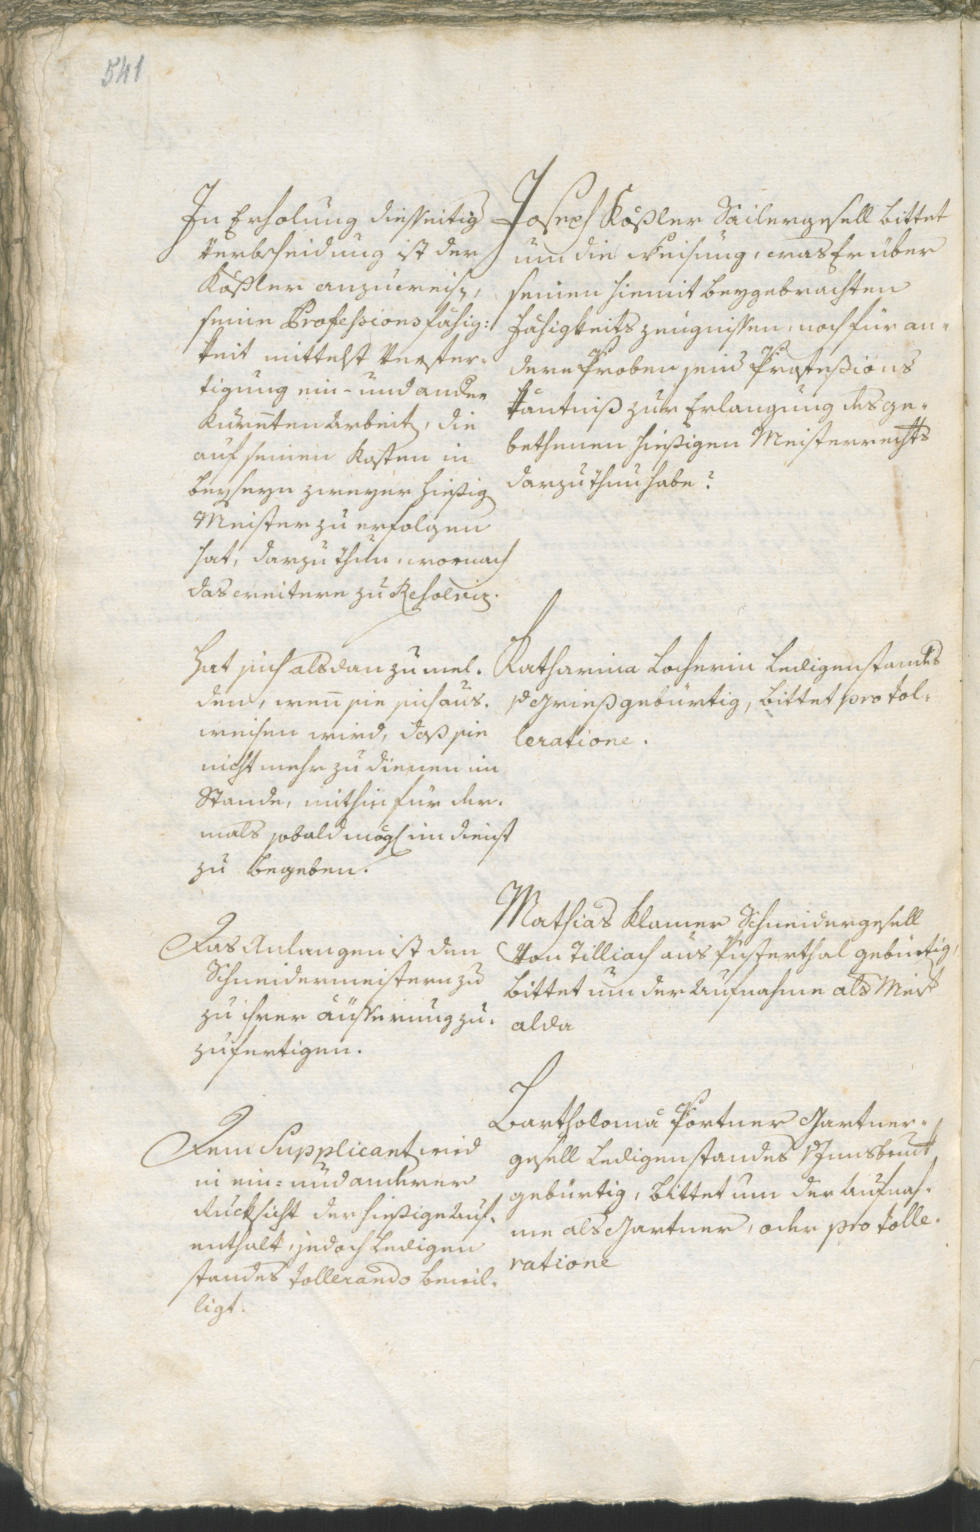 541
In Erholung diesseitig
Verbscheidung ist der
Kößler anzuweisen,
seine Professionsfähig:
keit mittelst Verfer-
tigung ein- und andern
Kunten Arbeit, die
auf seinen Kosten in
beyseyn zweyer hießig
Meister zu erfolgen
hat, darzuthun, wornach
das weitere zu Resolvirn.
Joseph Kößler Sailergesell bittet
um die Weisung, was Er über
seinen hiemit beygebrachten
Fähigkeits zeugnissen, noch für an-
dere Proben seines Professions
käntniß zur Erlangung des ge-
bethenen hießigen Meisterrechts
darzuthun habe?
Hat sich alsdan zu mel-
den, wenn sie sich aus-
weisen wird, daß sie
nicht mehr zu dienen im
Stande, mithin für der-
mals sobald mögl. im dienst
zu begeben.
Katharina Locherin Ledigenstandes
gebürtig, bittet pro tol-
leratione.
Das Anlangen ist den
Schneidermeistern zu
zu ihrer äusserung zu-
zufertigen.
Mathias Klamer Schneidergesell
von Tilliach aus Pusterthal gebürtig,
bittet um der Aufnahme als Meist
alda
Dem Supplicant wird
in ein- und anderer
Rucksicht der hießige Auf-
enthalt, jedoch Ledigen
standes tollerando bewil-
ligt.
Bartholomä Portner Gartner-
gesell Ledigenstandes v. Innsbruck
gebürtig, bittet um der Aufnah-
me als Gartner, oder pro tolle-
ratione